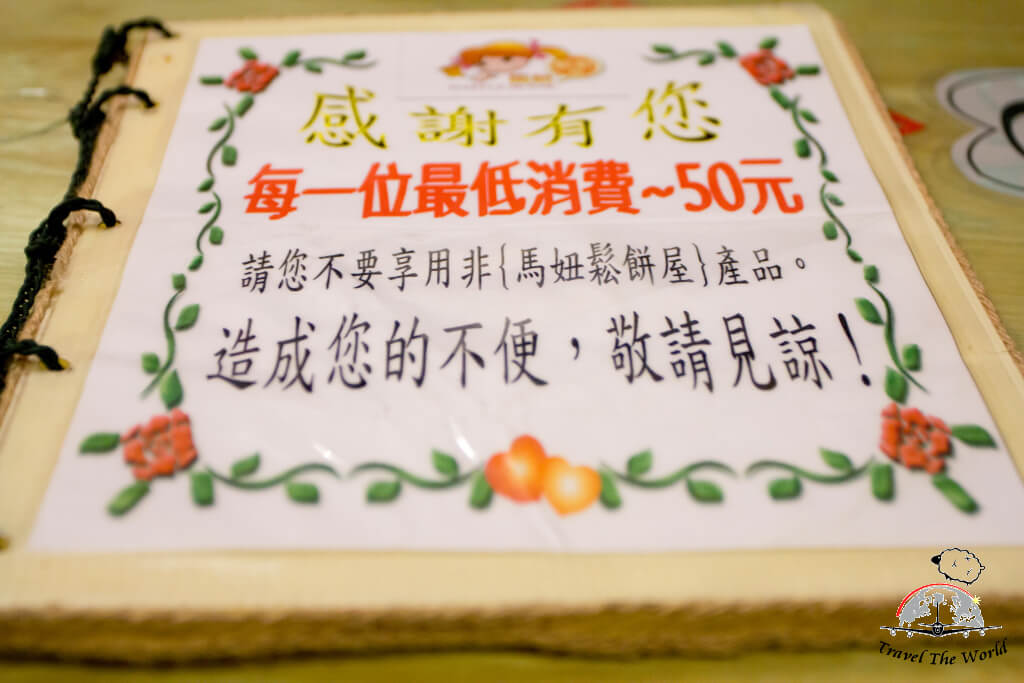 感謝有您
每一位最低消費~50元
請您不要享用非{馬妞鬆餅屋}產品。
造成您的不便，敬請見諒！
Travel The World